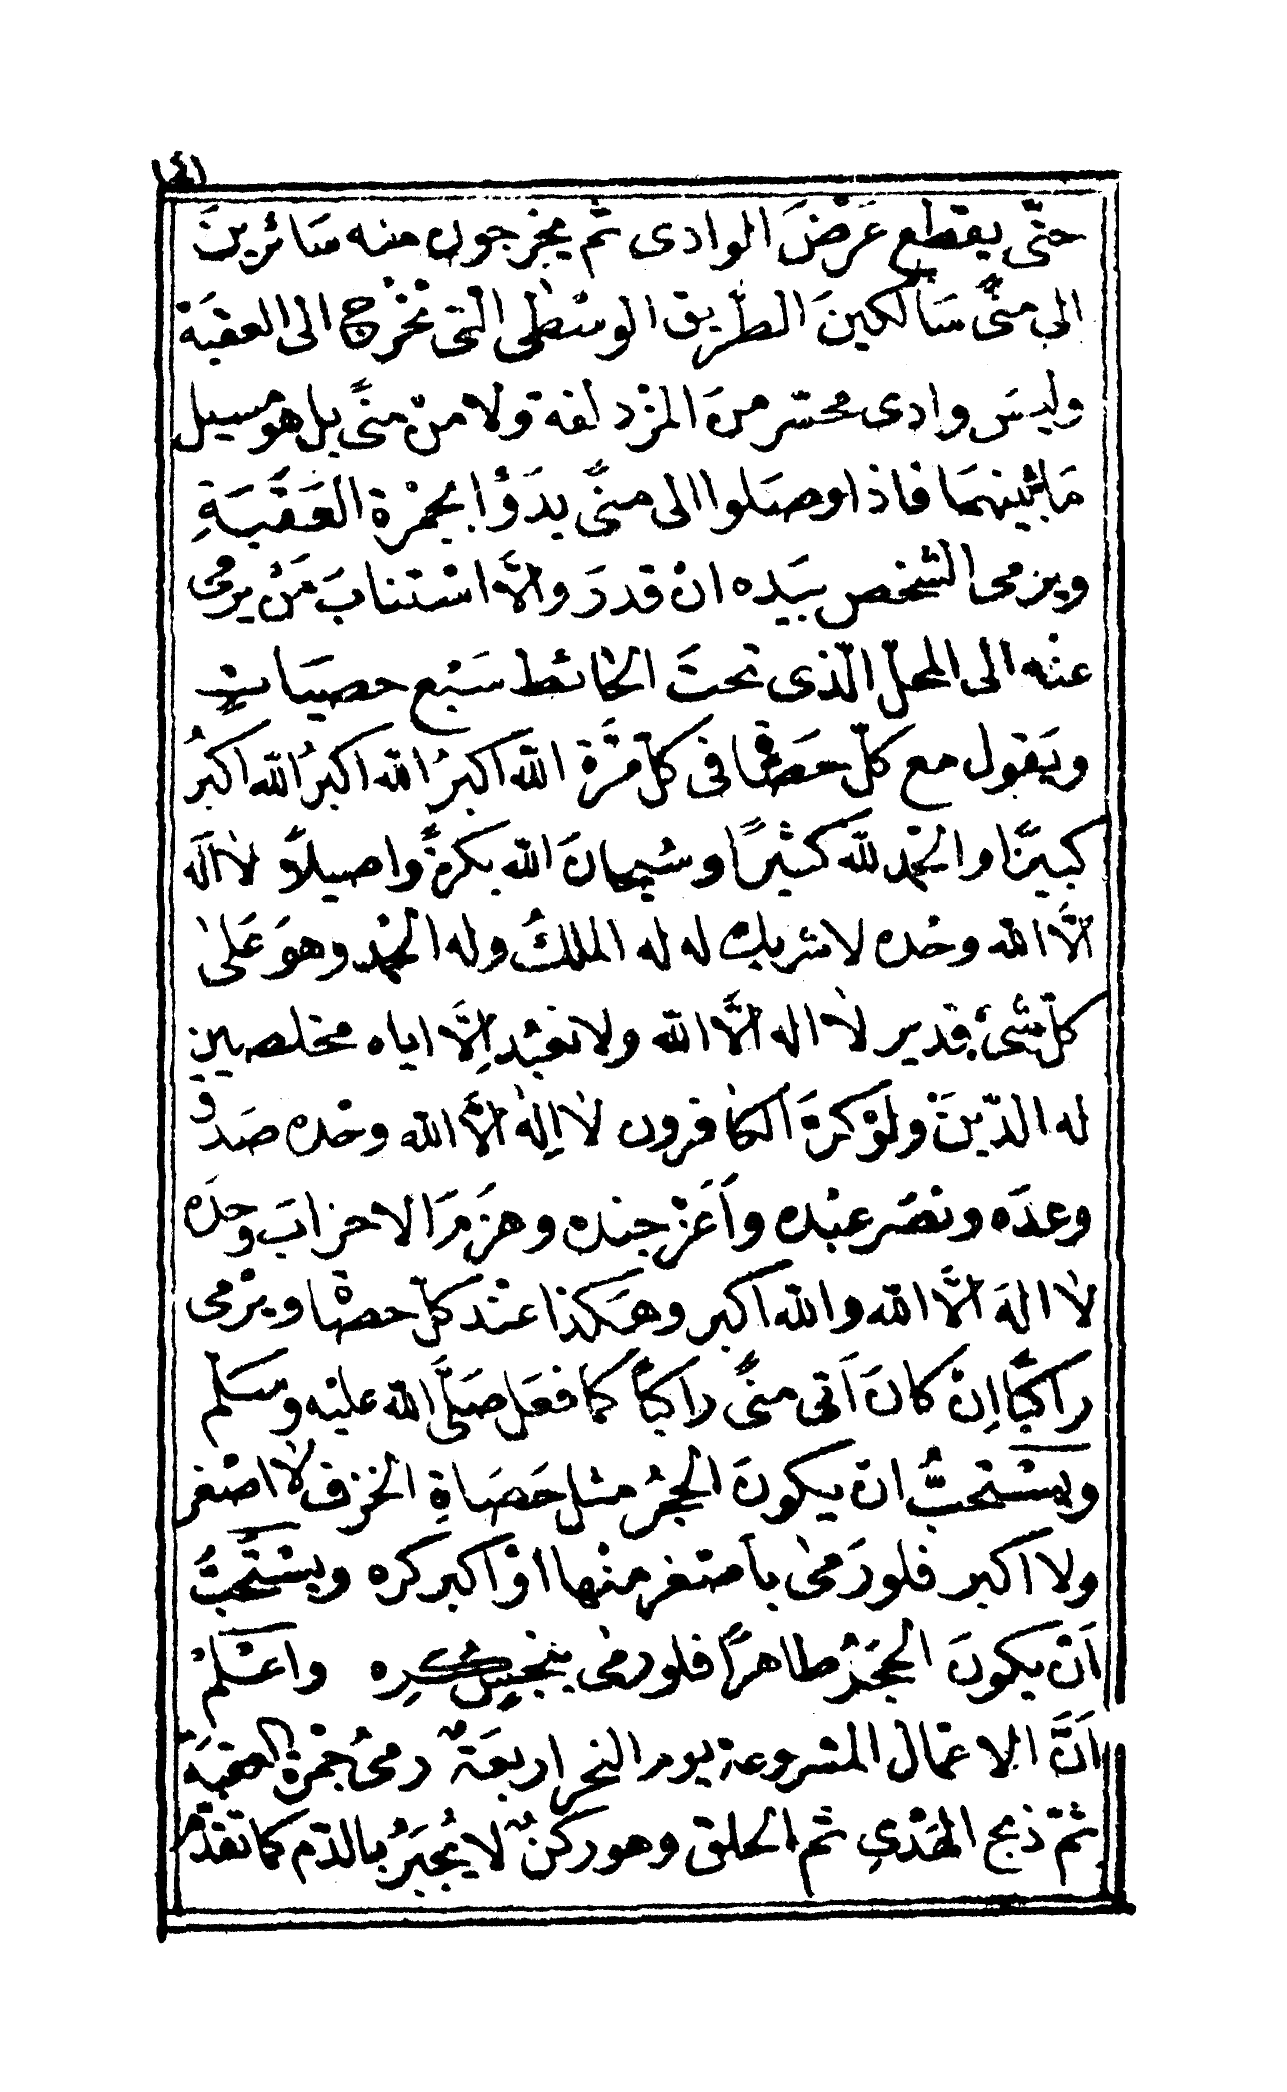 ١٤١
حتّى يقطع عَرْضَ الوادى ثم يخرجون منه سَائرينَ
الى منًى سَالكينَ الطّريق الوسْطٰى الّتى تخْرُج الى العقبَة
وليسَ وادى محسّر منَ المزْدلفة ولا منْ منًى بل هو مسيل
مَا بيْنهمَا فاذا وصَلوا الى منًى بدَؤْا بجمْرة العَقَبَةِ
ويرْمى الشخص بيَده انْ قدرَ والّا اسْتنابَ مَنْ يرْمى
عنْه الى المحلّ الّذى تحتَ الحائط سَبْع حصيَاتٍ
ويَقول مع كلّ حَصَاةٍ فى كلّ مرَّة اللّه اكبرُ اللّه اكبرُ اللّه اكبرُ
كبيرًا والحمْد للّه كثيرًا وسُبحانَ اللّه بكرةً واصيلاً لا الٰه
الّا اللّه وحْده لا شريك له له الملكُ وله الحمْد وهوَ عَلىٰ
كلّ شىْءٍ قدير لا اله الّا اللّه ولا نعْبُد اِلّا اياه مخلصين
له الدّينَ ولوْ كرهَ الكافرون لا اِلٰه الّا اللّه وحْده صَدق
وعدَه ونصَر عبْده واَعَزْ جنده وهزَمَ الاحزابَ وحدَه
لا الهَ الّا اللّه واللّه اكبر وهٰكذا عنْد كلّ حصاة ويرْمى
راكبًا اِنْ كانَ اَتى منًى راكبًا كما فعَل صَلَّى اللّه عليْه وسَلّم
ويسْتحبُّ انْ يكونَ الحجرُ مثل حَصَاةِ الخزف لا اصْغر
ولا اكبر فلو رَمىٰ باَصْغر منْها اوْ اكبر كره ويسْتحَبُّ
اَنْ يكونَ الحجَرُ طاهرًا فلو رمٰى بنجسٍ كرِه واعْلمْ
اَنَّ الاعْمال المشروعة يوم النحر اربعَةٌ رمىُ جمْرة العقبَة
ثمّ ذبح الهَدْىِ ثم الحلق وهو ركنٌ لا يُجبَرُ بالدّم كما تقدّم